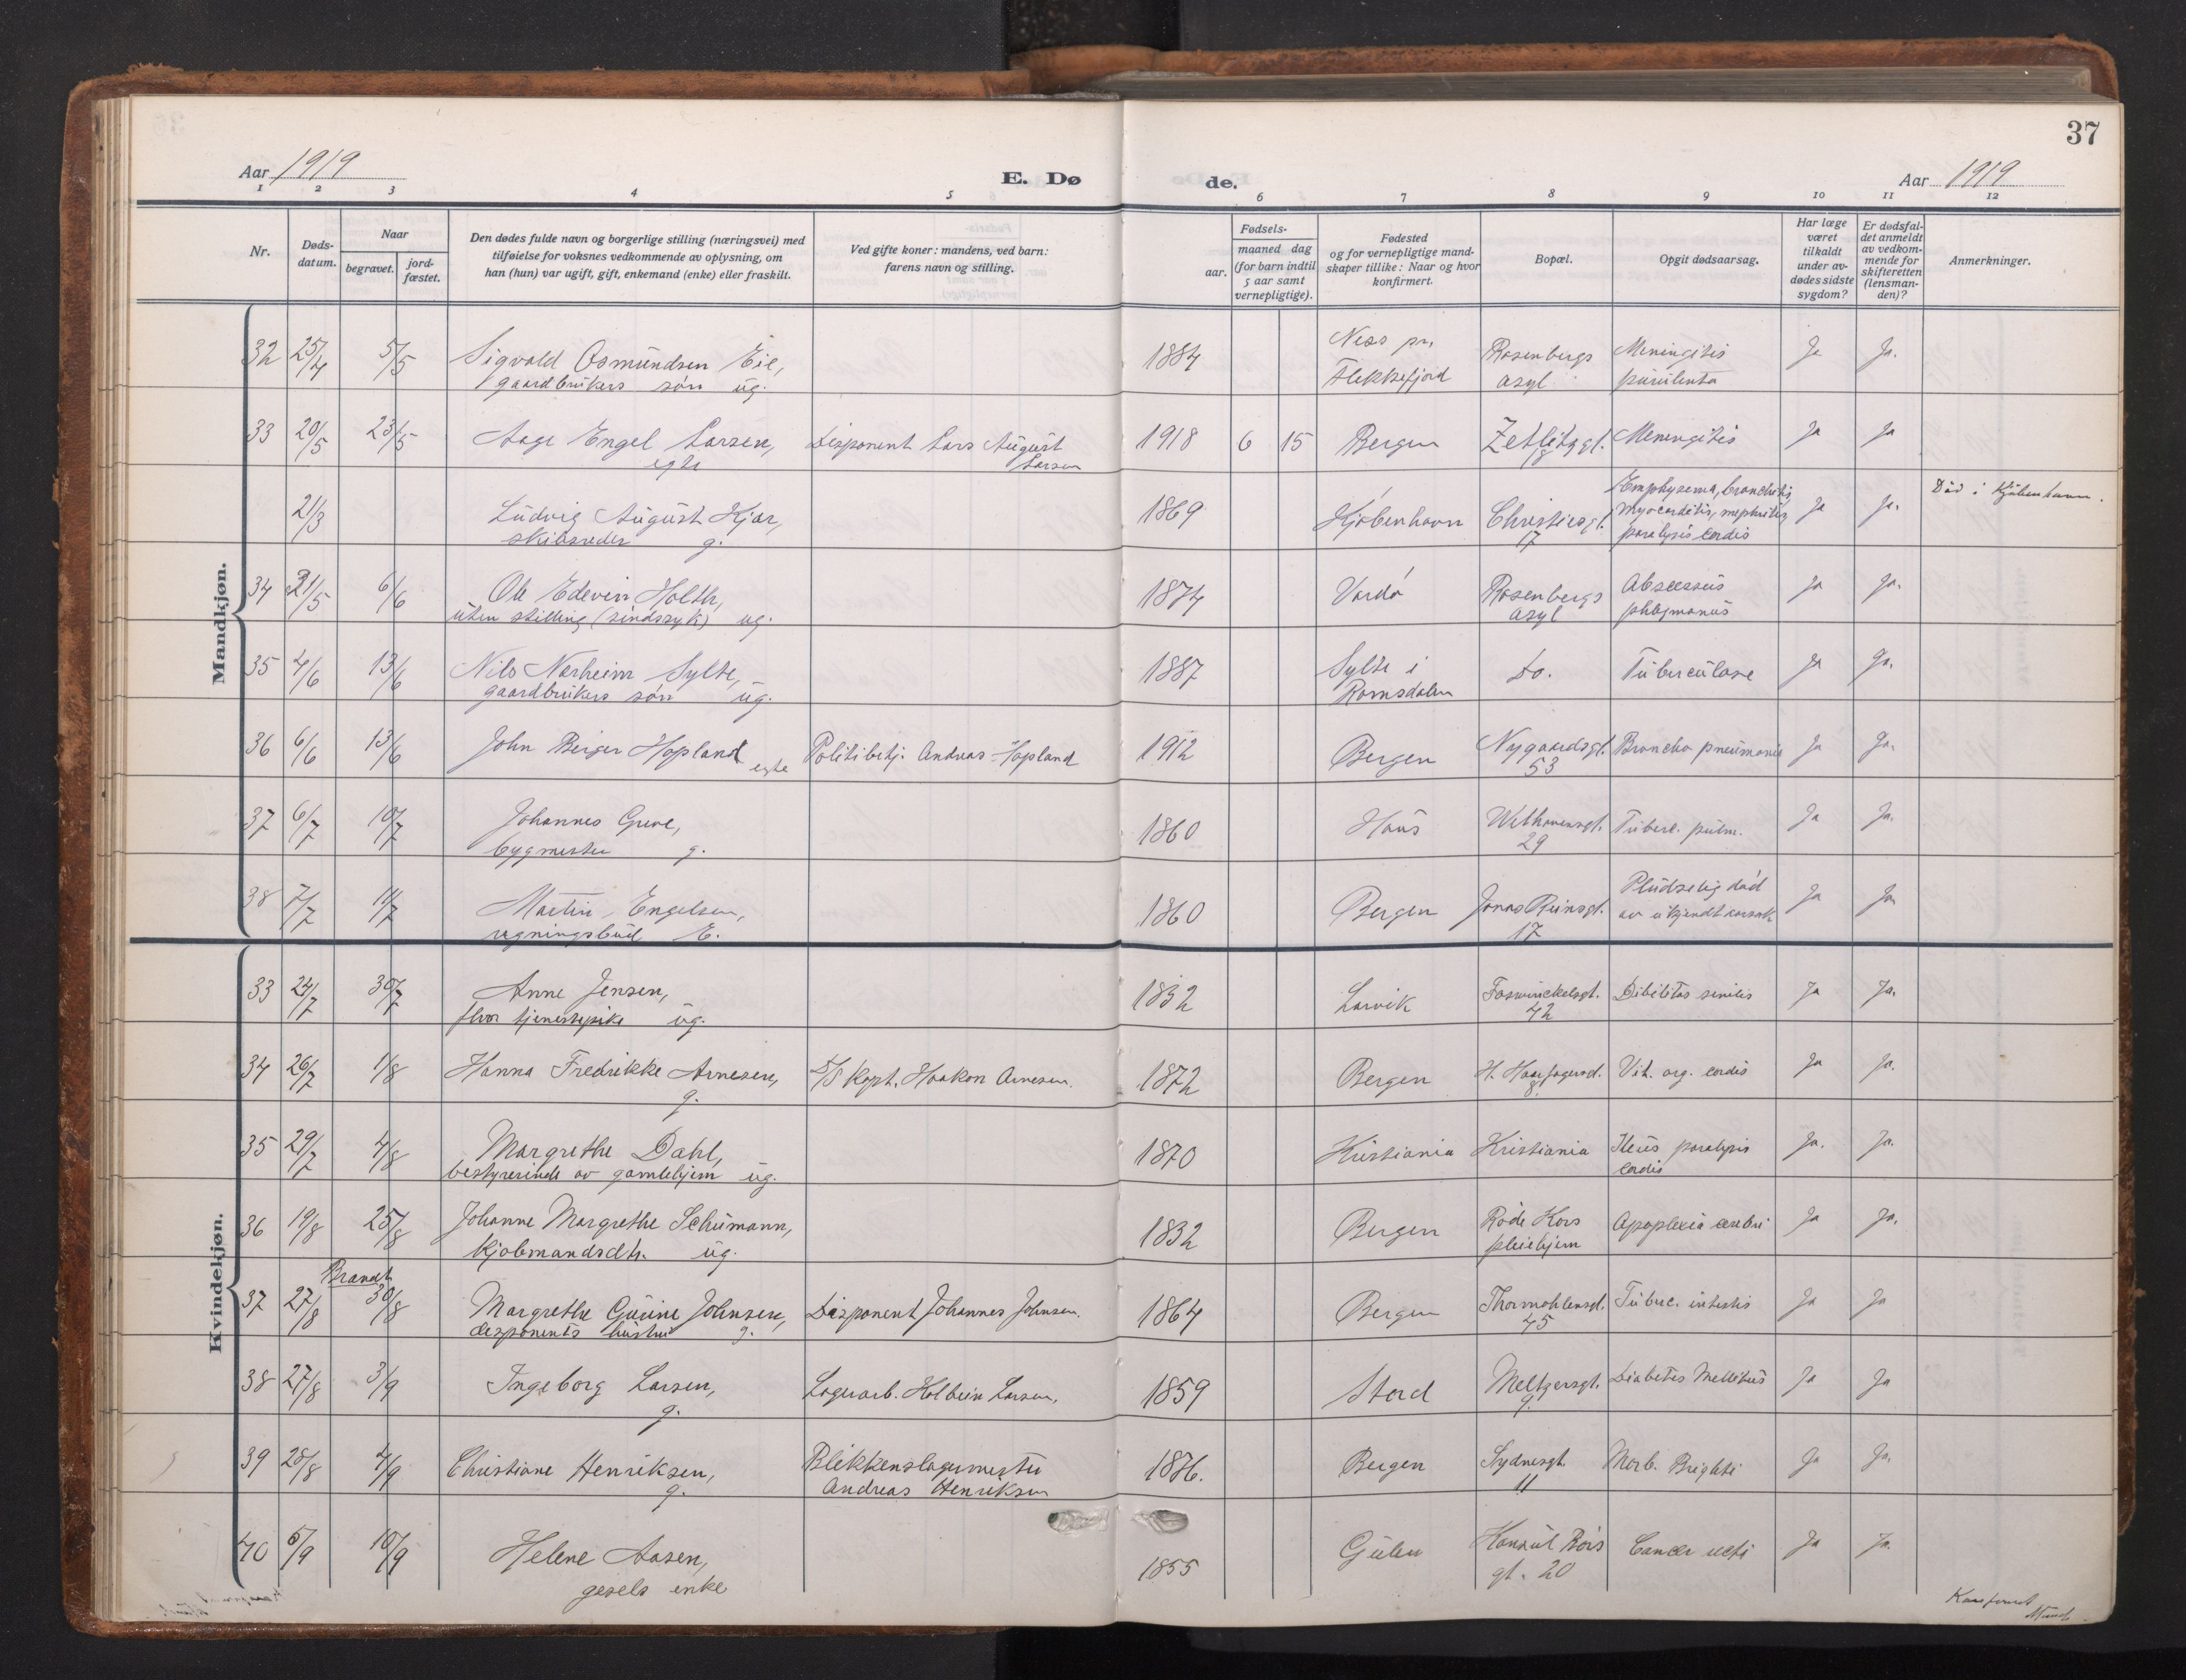 37
Aar 1919
E. Dø de.
Aar 1919
1 2 3 4 5 6 7 8 9 10 11 12
Nr.
Døds-datum.
Naar
begravet.
jord-fæstet.
Den dødes fulde navn og borgerlige stilling (næringsvei) med
tilføielse for voksnes vedkommende av oplysning, om
han (hun) var ugift, gift, enkemand (enke) eller fraskilt.
Ved gifte koner: mandens, ved barn:
farens navn og stilling.
Fødsels-
aar.
maaned dag
(for barn indtil
5 aar samt
vernepligtige).
Fødested
og for vernepligtige mand-
skaper tillike: Naar og hvor
konfirmert.
Bopæl.
Opgit dødsaarsag.
Har læge
været
tilkaldt
under av-
dødes sidste
sygdom?
Er dødsfal-
det anmeldt
av vedkom-
mende for
skifteretten
(lensman-
den)?
Anmerkninger.
Mandkjøn.
32 25/4 5/5 Sigvald Osmundsen Eie, 1884 Ness pr. Rosenbergs Meningitis Ja Ja.
gaardbrukers søn ug. Flekkefjord asyl purulenta
33 20/5 23/5 Aage Engel Larsen, Disponent Lars August 1918 6 15 Bergen Zetlitzgt. Meningitis Ja Ja
egte Larsen 18
21/3 Ludvig August Kjær, 1869 Kjøbenhavn Christiesgt. Emphysema, bronchitis, Ja Ja. Död i Kjøbenhavn.
skibsreder g. 17 myocarditis, nephritis, paralysis cordis
34 21/5 6/6 Ole Edevin Holth, 1874 Vardø Rosenbergs Abscessus Ja Ja.
uten stilling (sindssyk) ug. asyl phlegmonus
35 4/6 13/6 Nils Nerheim Sylte, 1887 Sylte i Do. Tuberculose Ja Ja.
gaardbrukers søn ug. Romsdalen
36 6/6 13/6 John Birger Hopland egte Politibetj. Andreas Hopland 1912 Bergen Nygaardsgt. Broncho pneumonie Ja Ja.
53
37 6/7 10/7 Johannes Greve, 1860 Haus Welhavensgt. Tuberc. pulm. Ja Ja.
bygmester g. 29
38 7/7 11/7 Martin Engelsen, 1860 Bergen Jonas Reinsgt. Pludselig død Ja Ja
regningsbud E. 17 av ukjendt aarsak
Kvindekjøn.
33 24/7 30/7 Anne Jensen, 1832 Larvik Foswinckelsgt. Debilitas senilis Ja Ja.
fhv. tjenestepike ug. 42
34 26/7 1/8 Hanna Fredrikke Arnesen, D/S Kapt. Haakon Arnesen. 1872 Bergen H. Haarfagersd. Vit. org. cordis Ja Ja.
g. 8.
35 29/7 4/8 Margrethe Dahl, 1870 Kristiania Kristiania Ileus paralysis Ja. Ja.
bestyrerinde av gamlehjem ug. cordis
36 19/8 25/8 Johanne Margrethe Schumann, 1832 Bergen Røde Kors Apoplexia cerebri Ja Ja.
kjøbmandsdtr. ug. pleiehjem
Brandt
37 27/8 30/8 Margrethe Gurine Johnsen, Disponent Johannes Johnsen. 1864 Bergen Thormøhlensgt. Tuberc. intestis Ja Ja
disponents hustru g. 45
38 27/8 3/9 Ingeborg Larsen, Lagerarb. Holbein Larsen, 1859 Stord Meltzersgt. Diabetes Mellitus Ja Ja
g. 9.
39 28/8 4/9 Christiane Henriksen, Blikkenslagermester 1876. Bergen Sydnesgt. Morb. Brighti Ja Ja.
g. Andreas Henriksen 11
40 5/9 10/9 Helene Aasen, 1855 Gulen Konsul Børs Cancer recti Ja Ja.
gesels enke gt. 20
Konfereret